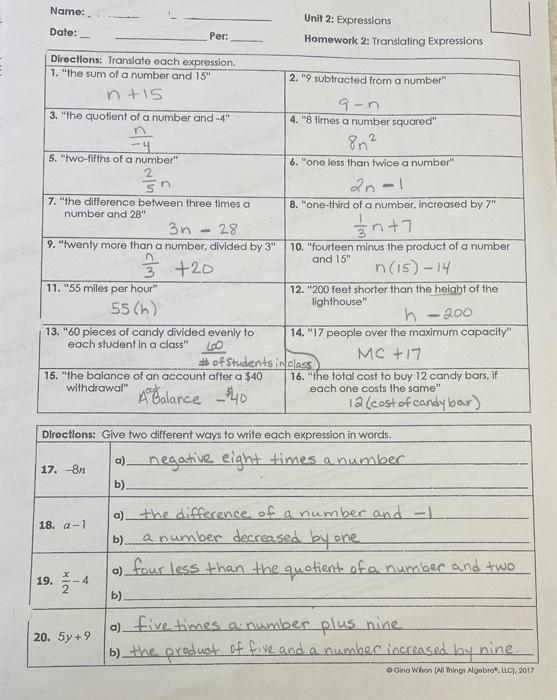 Name:
Unit 2: Expressions
Date:
Per:
Homework 2: Translating Expressions
Directions: Translate each expression.
1. "the sum of a number and 15"
n + 15
2. "9 subtracted from a number"
9 - n
3. "the quotient of a number and -4"
n
-4
4. "8 times a number squared"
8n²
5. "two-fifths of a number"
2
5 n
6. "one less than twice a number"
2n - 1
7. "the difference between three times a
number and 28"
3n - 28
8. "one-third of a number, increased by 7"
1
3 n + 7
9. "twenty more than a number, divided by 3"
n
3 + 20
10. "fourteen minus the product of a number
and 15"
n(15) - 14
11. "55 miles per hour"
55 (h)
12. "200 feet shorter than the height of the
lighthouse"
h - 200
13. "60 pieces of candy divided evenly to
each student in a class"
60
# of Students in class
14. "17 people over the maximum capacity"
MC + 17
15. "the balance of an account after a $40
withdrawal"
Balance - $40
16. "the total cost to buy 12 candy bars, if
each one costs the same"
12 (cost of candy bar)
Directions: Give two different ways to write each expression in words.
17. -8n
a) negative eight times a number
b)
18. a - 1
a) the difference of a number and -1
b) a number decreased by one
19. x/2 - 4
a) four less than the quotient of a number and two
b)
20. 5y + 9
a) five times a number plus nine
b) the product of five and a number increased by nine.
© Gina Wilson (All Things Algebra®, LLC), 2017